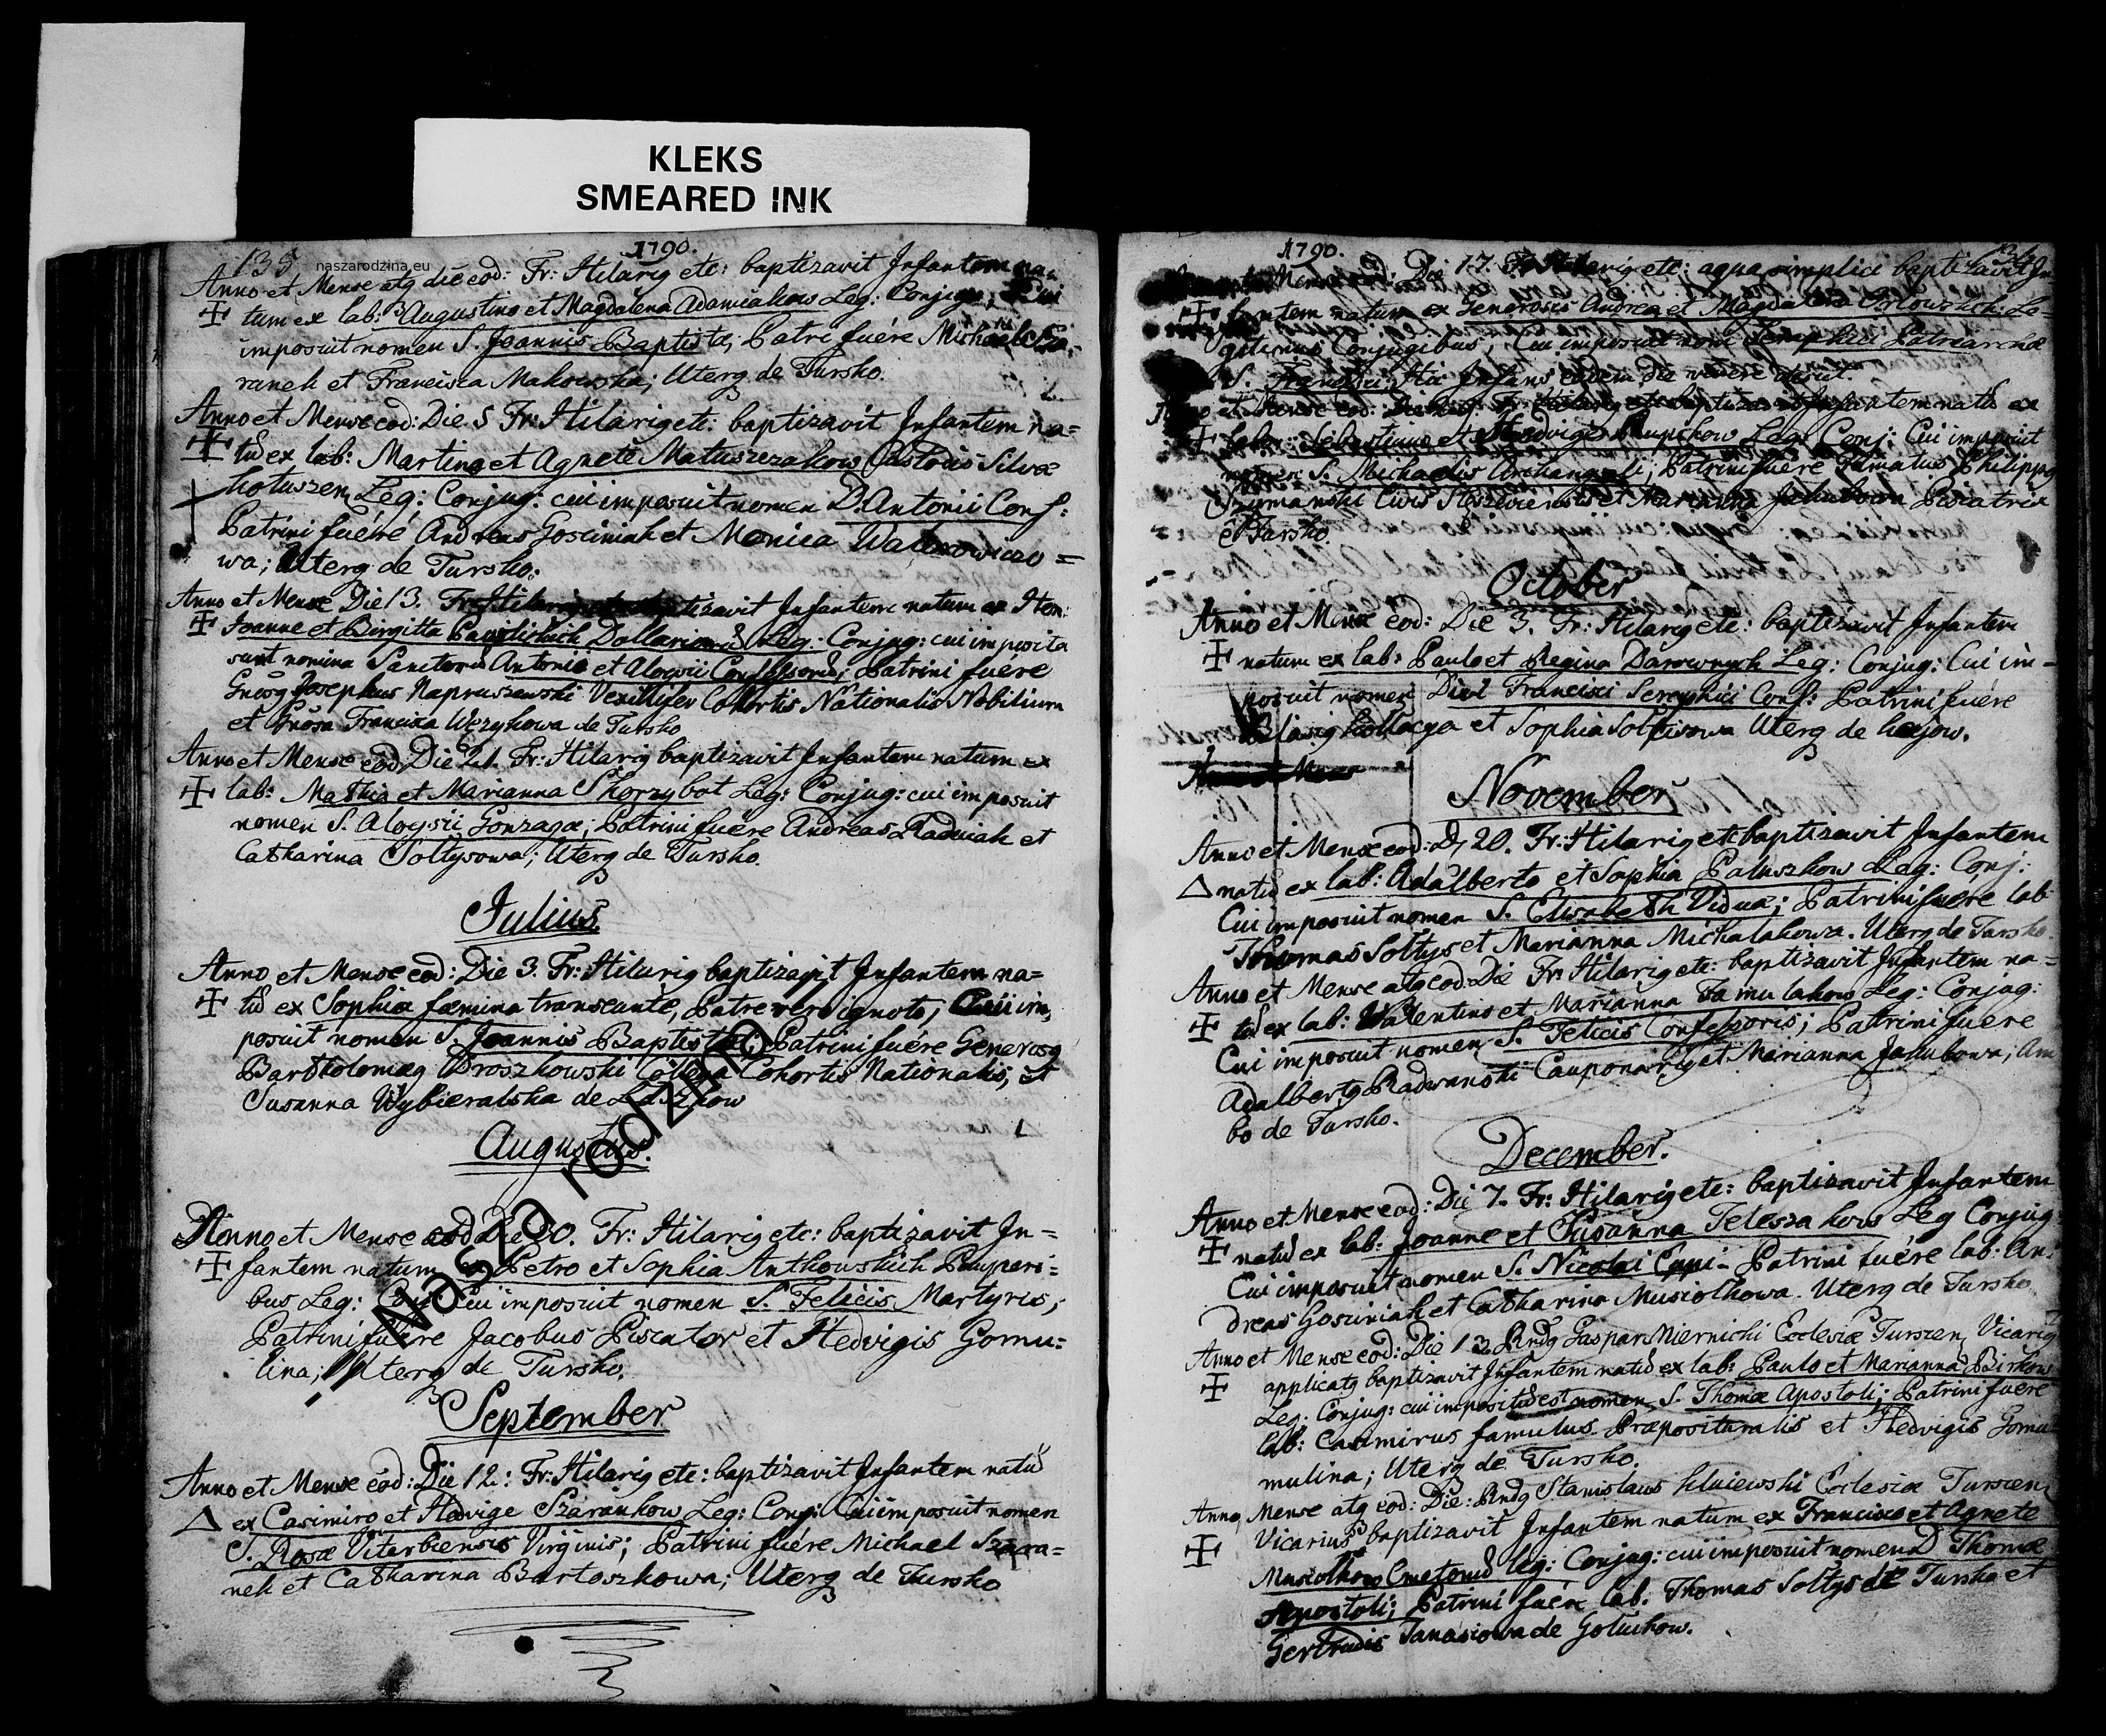 KLEKS
SMEARED INK
1790.
135
naszarodzina.eu
Anno et Mense atq die eod: Fr: Hilarig etc: baptizavit Infantem na-
tum ex lab: Augustino et Magdalena Adamiakow Leg: Conjug:, Cui
imposuit nomen S. Joannis Baptistæ; Patri fuére Michael Sza-
ranek et Francisca Makowska; Uterq de Tursko.
Anno et Mense eod: Die 5 Fr: Hilarig etc: baptizavit Infantem na=
tū ex lab: Martino et Agnete Matuszczakow Custodis Silvæ
Leg: Conjug: cui imposuit nomen D. Antonii Conf:
Patrini fuére Andreas Gosciniak et Monica
wa; Uterq de Tursko.
Anno et Mense Die 13. Fr: Hilarig etc baptizavit Infantem natum ex Hon:
Joanne et Birgitta Leg: Conjug: cui imposita
sunt nomina Sanctorū Antonii et Aloysii Confessorū; Patrini fuére
Gnosg Josephus Napruszewski Vexillifer Cohortis Nationalis Nobilium
et Gnosa Francisca Węzykowa de Tursko
Anno et Mense eod: Die 21. Fr: Hilarig baptizavit Infantem natum ex
lab: Mathia et Marianna Skorzybot Leg: Conjug: cui imposuit
nomen S. Aloysii Gonzagæ; Patrini fuére Andreas Radniak et
Catharina Soltysowa; Uterq de Tursko.
Julius.
Anno et Mense eod: Die 3. Fr: Hilarig baptizavit Infantem na=
tū ex Sophia fæmina transeunte, Patre vero ignoto; Cui im,
posuit nomen S. Joannis Baptistæ; Patrini fuére Generosg
Bartholomæg Droszkowski Collega Cohortis Nationalis, et
Susanna Wybieralska de
Augustus.
Nasza rodzina
Anno et Mense eod Die 30. Fr: Hilarig etc: baptizavit In=
fantem natum ex Petro et Sophia Antkowskich Pauperi=
bus Leg: Conj: Cui imposuit nomen S. Felicis Martyris;
Patrini fuére Jacobus Piscator et Hedvigis Gomu=
lina; Uterq de Tursko.
September
Anno et Mense eod: Die 12: Fr: Hilarig etc: baptizavit Infantem natū
ex Casimiro et Hedvige Szarankow Leg: Conj: Cui imposuit nomen
S. Rosæ Viterbiensis Virginis; Patrini fuére Michael Szara=
nek et Catharina Bartoszkowa; Uterq de Tursko
1790.
Mense eod: Die 17. Fr Hilarig etc: aqua simplici baptizavit In
fantem natum ex Generosis Andrea et Magdalena Orlowskich Le-
gitimis Conjugibus, Cui imposuit nom Seraphici Patriarchæ
S. Francisci. Hic Infans eadem die vivere desiit.
et Mense eod: Fr Hilarig etc baptizavit Infantem natū ex
labor: Sebastiano et Hedvige Leg: Conj: Cui imposuit
nomen S. Michaelis Archangeli; Patrini fuére Famatus Philippg
Szymanski Civis et Marianna Jakubowa Piscatrix
è Tursko.
October
Anno et Mense eod: Die 3. Fr: Hilarig etc: baptizavit Infantem
natum ex lab: Paulo et Regina Darownych Leg: Conjug: Cui im-
posuit nomen Divi Francisci Seraphici Conf: Patrini fuére
Kollacya et Sophia Soltysowa Uterq de
November
Anno et Mense eod: D, 20. Fr: Hilarig etc baptizavit Infantem
natū ex lab: Adalberto et Sophia Paluszkow Leg: Conj:
Cui imposuit nomen S. Elisabeth Viduæ; Patrini fuére lab
Thomas Soltys et Marianna Michalakowa. Uterq de Tursko.
Anno et Mense atq eod: Die Fr: Hilarig etc: baptizavit Infantem na=
tū ex lab: Valentino et Marianna Famulakow Leg: Conjug:
Cui imposuit nomen S. Felicis Confessoris; Patrini fuére
Adalbertg Radwanski Cauponarig et Marianna Jakubowa; Am
bo de Tursko.
December.
Anno et Mense eod: Die 7. Fr: Hilarig etc: baptizavit Infantem
natū ex lab: Joanne et Susanna Teleszakow Leg Conjug
Cui imposuit nomen S. Nicolai Eppi- Patrini fuére lab: An-
dreas Gosciniak et Catharina Musiolkowa. Uterq de Tursko.
Anno et Mense eod: Die 13. Rndg Gaspar Miernicki Ecclesiæ Turscen, Vicarig
applicatg baptizavit Infantem natū ex lab: Paulo et Marianna Birkow
Leg: Conjug: cui impositū est nomen S. Thomæ Apostoli; Patrini fuére
lab: Casimirus famulus Præposituralis et Hedvigis Gomu
mulina; Uterq de Tursko.
Anno, Mense atq eod: Die: Rndg Stanislaus Kluiewski Ecclesiæ Turscen,
Vicarius baptizavit Infantem natum ex Francisco et Agnete
Musiolkow Cmetonū Leg: Conjug: cui imposuit nomen D Thomæ
Apostoli; Patrini fuére lab. Thomas Soltys de Tursko et
Gertrudis Tanasiowa de Goluchow.